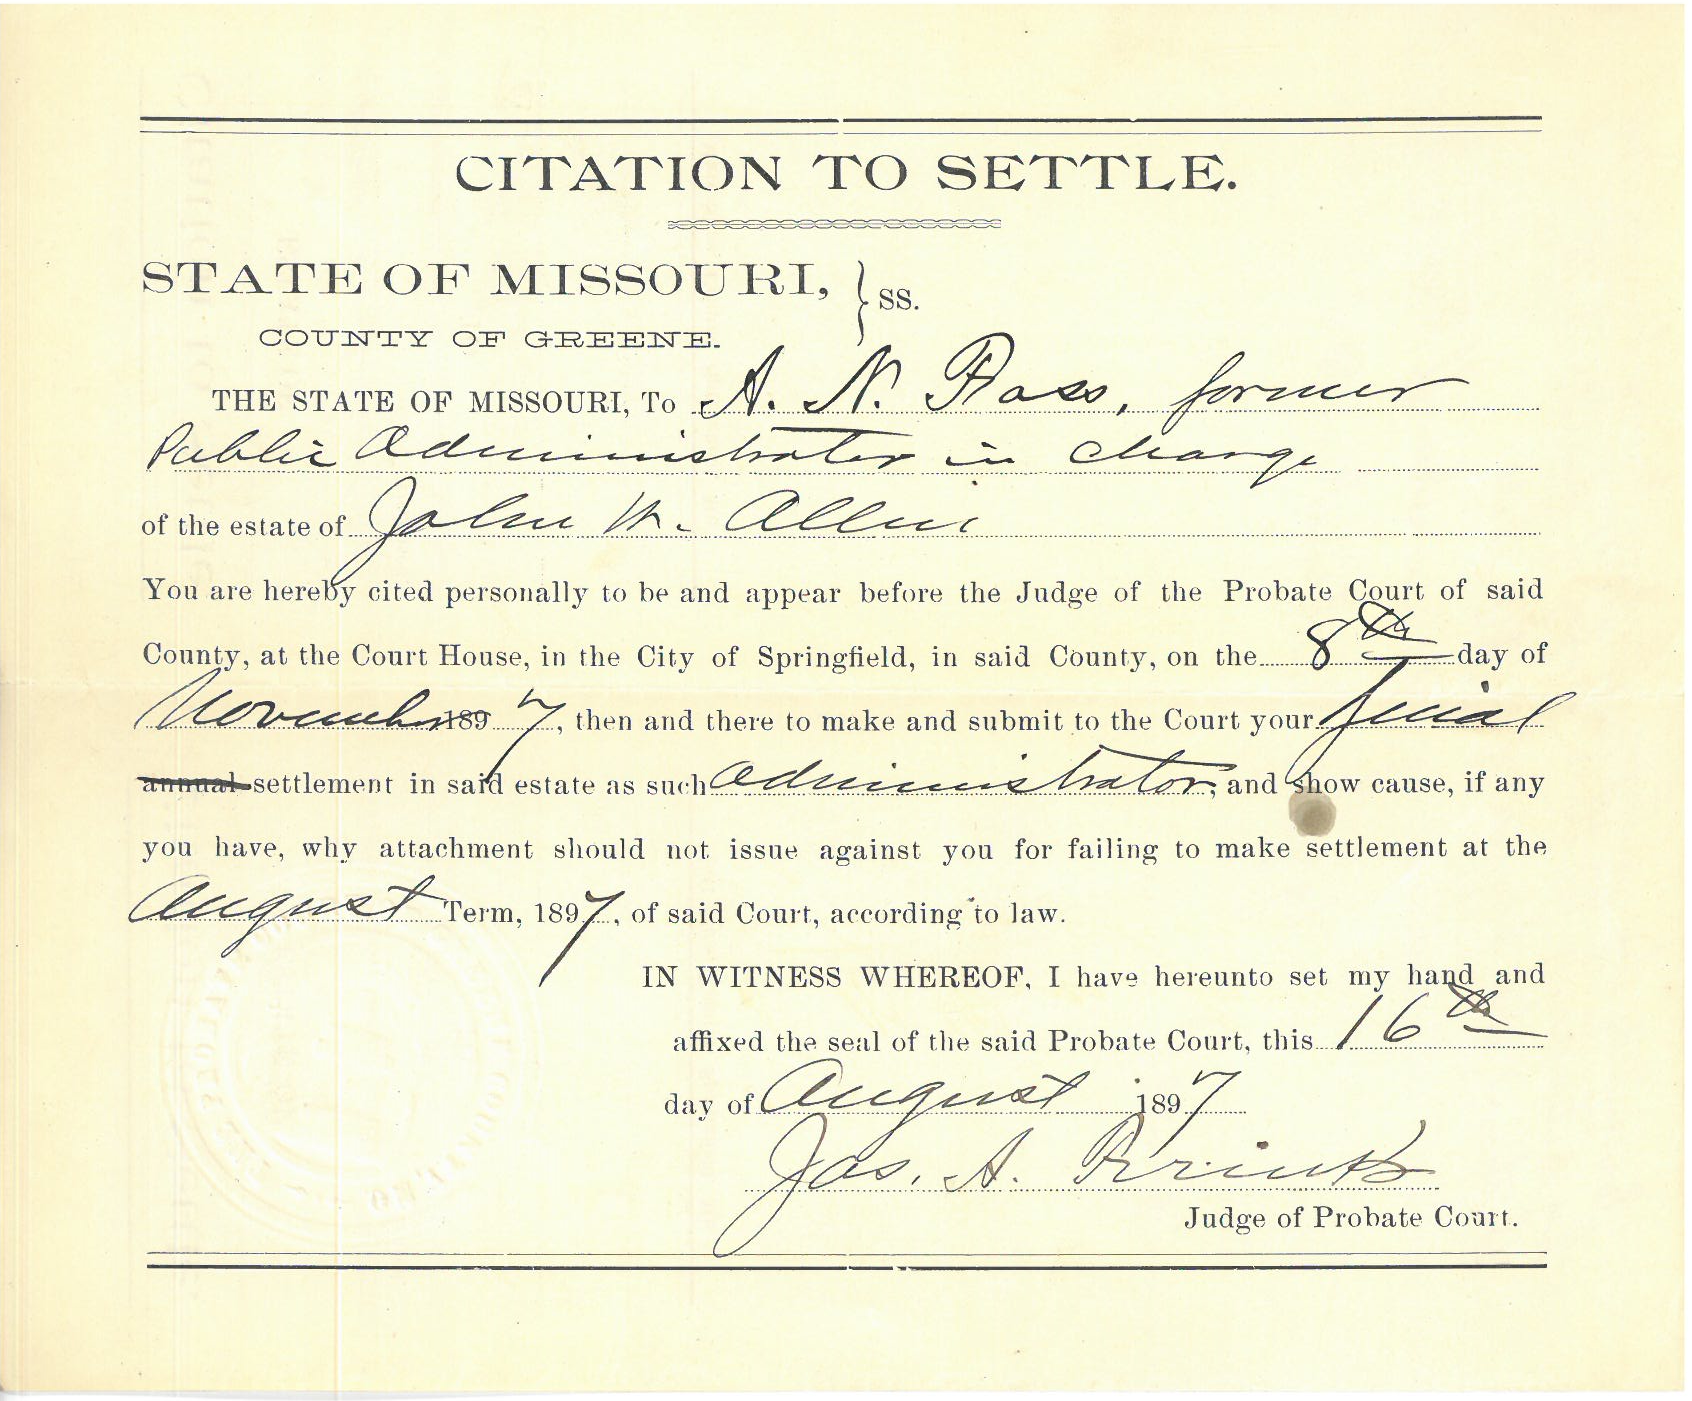 CITATION TO SETTLE.
STATE OF MISSOURI, } SS.
COUNTY OF GREENE.
THE STATE OF MISSOURI, To A. N. Ross, former
Public Administrator in charge
of the estate of John W. Allen
You are hereby cited personally to be and appear before the Judge of the Probate Court of said
County, at the Court House, in the City of Springfield, in said County, on the 8th day of
November 1897, then and there to make and submit to the Court your final
annual settlement in said estate as such Administrator, and show cause, if any
you have, why attachment should not issue against you for failing to make settlement at the
August Term, 1897, of said Court, according to law.
IN WITNESS WHEREOF, I have hereunto set my hand and
affixed the seal of the said Probate Court, this 16th
day of August 1897
Jas. A.
Judge of Probate Court.